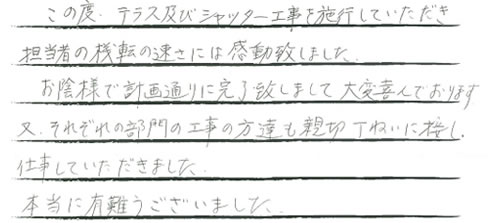 この度、テラス及びシャッター工事を施行していただき
担当者の機転の速さには感動致しました。
お陰様で計画通りに完了致しまして大変喜んでおります
又、それぞれの部門の工事の方達も親切丁ねいに接し、
仕事していただきました。
本当に有難うございました。